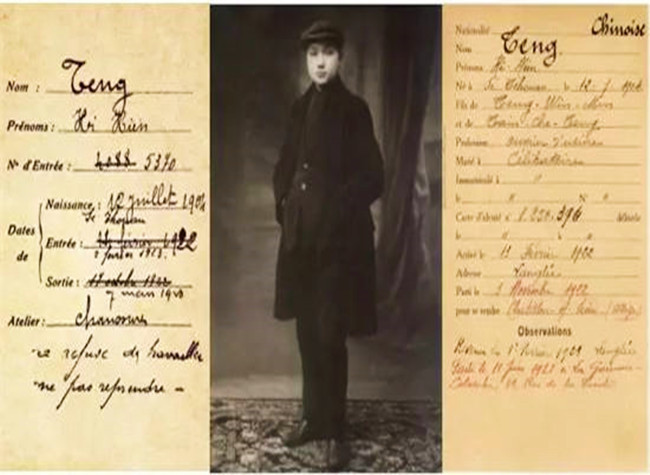 Nom : Teng
Prénoms : Hi Hien
N° d'Entrée : 4088 5370
Naissance : 12 juillet 1904
Se Thouan
Dates de
Entrée : 14 février 1922
2 février 1923
Sortie : 17 octobre 1922
7 mars 1923
Atelier : Chaussures
a refusé de travailler
ne pas reprendre –
Nationalité Chinoise
Nom Teng.
Prénoms Hi-Hien
Né à Se Tchouan le 12-7-1904
Fils de Teng-Win-Min
et de
Profession ouvrier d'usine
Marié à Célibataire
Immatriculé à "
le " N° "
Carte d'identité n° 1.238.394 délivrée
le " à "
Arrivé le 13 Février 1922
Adresse Langlée
Parti le 3 Novembre 1922
pour se rendre Chatillon s/ Seine
Observations
Revenu le 1er Février 1923 Langlée
Parti le 11 Juin 1923 à La Garenne-
Colombes, Rue de la Pointe